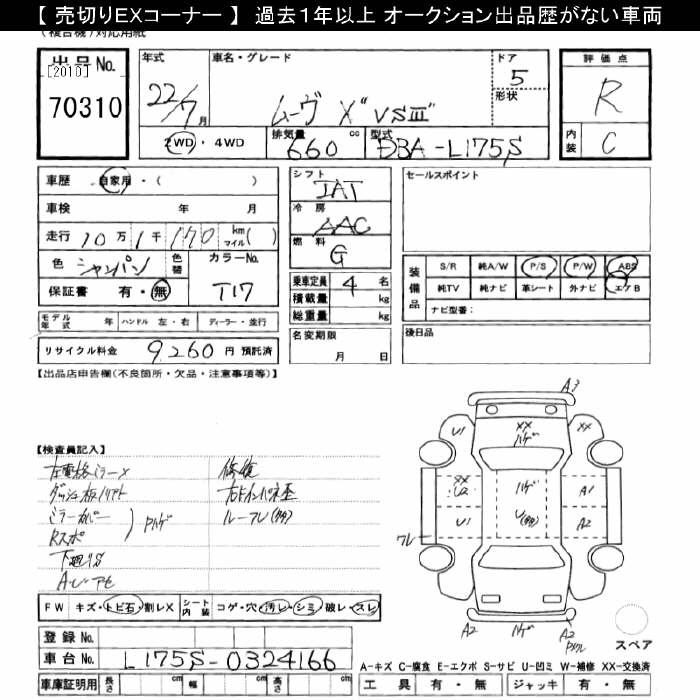 【 売切りEXコーナー 】 過去１年以上 オークション出品歴がない車両
(複合機)対応用紙
出品 No.
[2010]
70310
年式
22/7月
車名・グレード
ムーヴ X" VSⅢ"
ドア
5
形状
2WD ・ 4WD
排気量 cc
660
型式
DBA-L175S
評価点
R
内装
C
車歴 自家用・( )
車検 年 月
走行 10万 1千 170 km マイル ( )
色 シャンパン 色替 カラーNo.
T17
保証書 有・無
モデル年式 年 ハンドル 左・右 ディーラー・並行
リサイクル料金 9,260 円 預託済
シフト
IAT
冷房
AAC
燃料
G
乗車定員 4 名
積載量 kg
総重量 kg
名変期限
月 日
セールスポイント
装備品
S/R 純A/W P/S P/W ABS
純TV 純ナビ 革シート 外ナビ エアB
ナビ型番：
後日品
【出品店申告欄(不良箇所・欠品・注意事項等)】
【検査員記入】
左電格ミラーX
ミラーカバー
Rスポ
Pハゲ
下廻りS
修復
ルーフU
FW キズ・トビ石・割レX シート内装 コゲ・穴・汚レ・シミ・破レ・スレ
登録 No.
車台 No. L175S-0324166
車庫証明用 長さ cm 幅 cm 高さ cm
A3
U1
XX
ハゲ
XX
XX
U2
ハゲ
A1
U1
U
A2
ワレ
A2
ハゲ
A2
スペア
A-キズ C-腐食 E-エクボ S-サビ U-凹ミ W-補修 XX-交換済
工具 有・無 ジャッキ 有・無